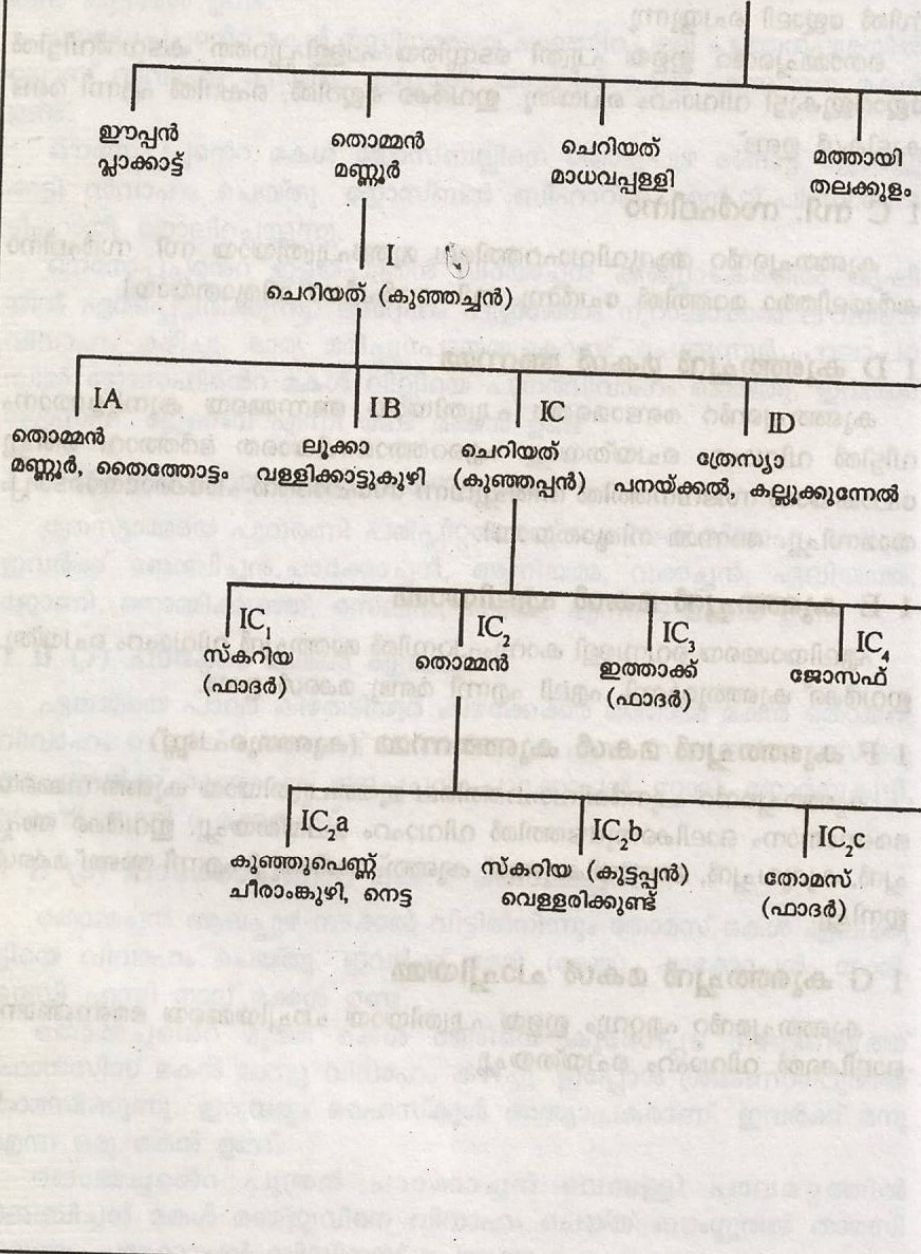 ഈപ്പൻ
പ്ലാക്കാട്ട്
തൊമ്മൻ
മണ്ണൂർ
ചെറിയത്
മാധവപ്പള്ളി
മത്തായി
തലക്കുളം
I
ചെറിയത് (കുഞ്ഞച്ചൻ)
IA
തൊമ്മൻ
മണ്ണൂർ, തൈത്തോട്ടം
IB
ലൂക്കാ
വള്ളിക്കാട്ടുകുഴി
IC
ചെറിയത്
(കുഞ്ഞപ്പൻ)
ID
ത്രേസ്യാ
പനയ്ക്കൽ, കല്ലൂക്കുന്നേൽ
IC₁
സ്കറിയ
(ഫാദർ)
IC₂
തൊമ്മൻ
IC₃
ഇത്താക്ക്
(ഫാദർ)
IC₄
ജോസഫ്
IC₂a
കുഞ്ഞുപെണ്ണ്
ചീരാംകുഴി, നെട്ട
IC₂b
സ്കറിയ (കുട്ടപ്പൻ)
വെള്ളരിക്കുണ്ട്
IC₂c
തോമസ്
(ഫാദർ)